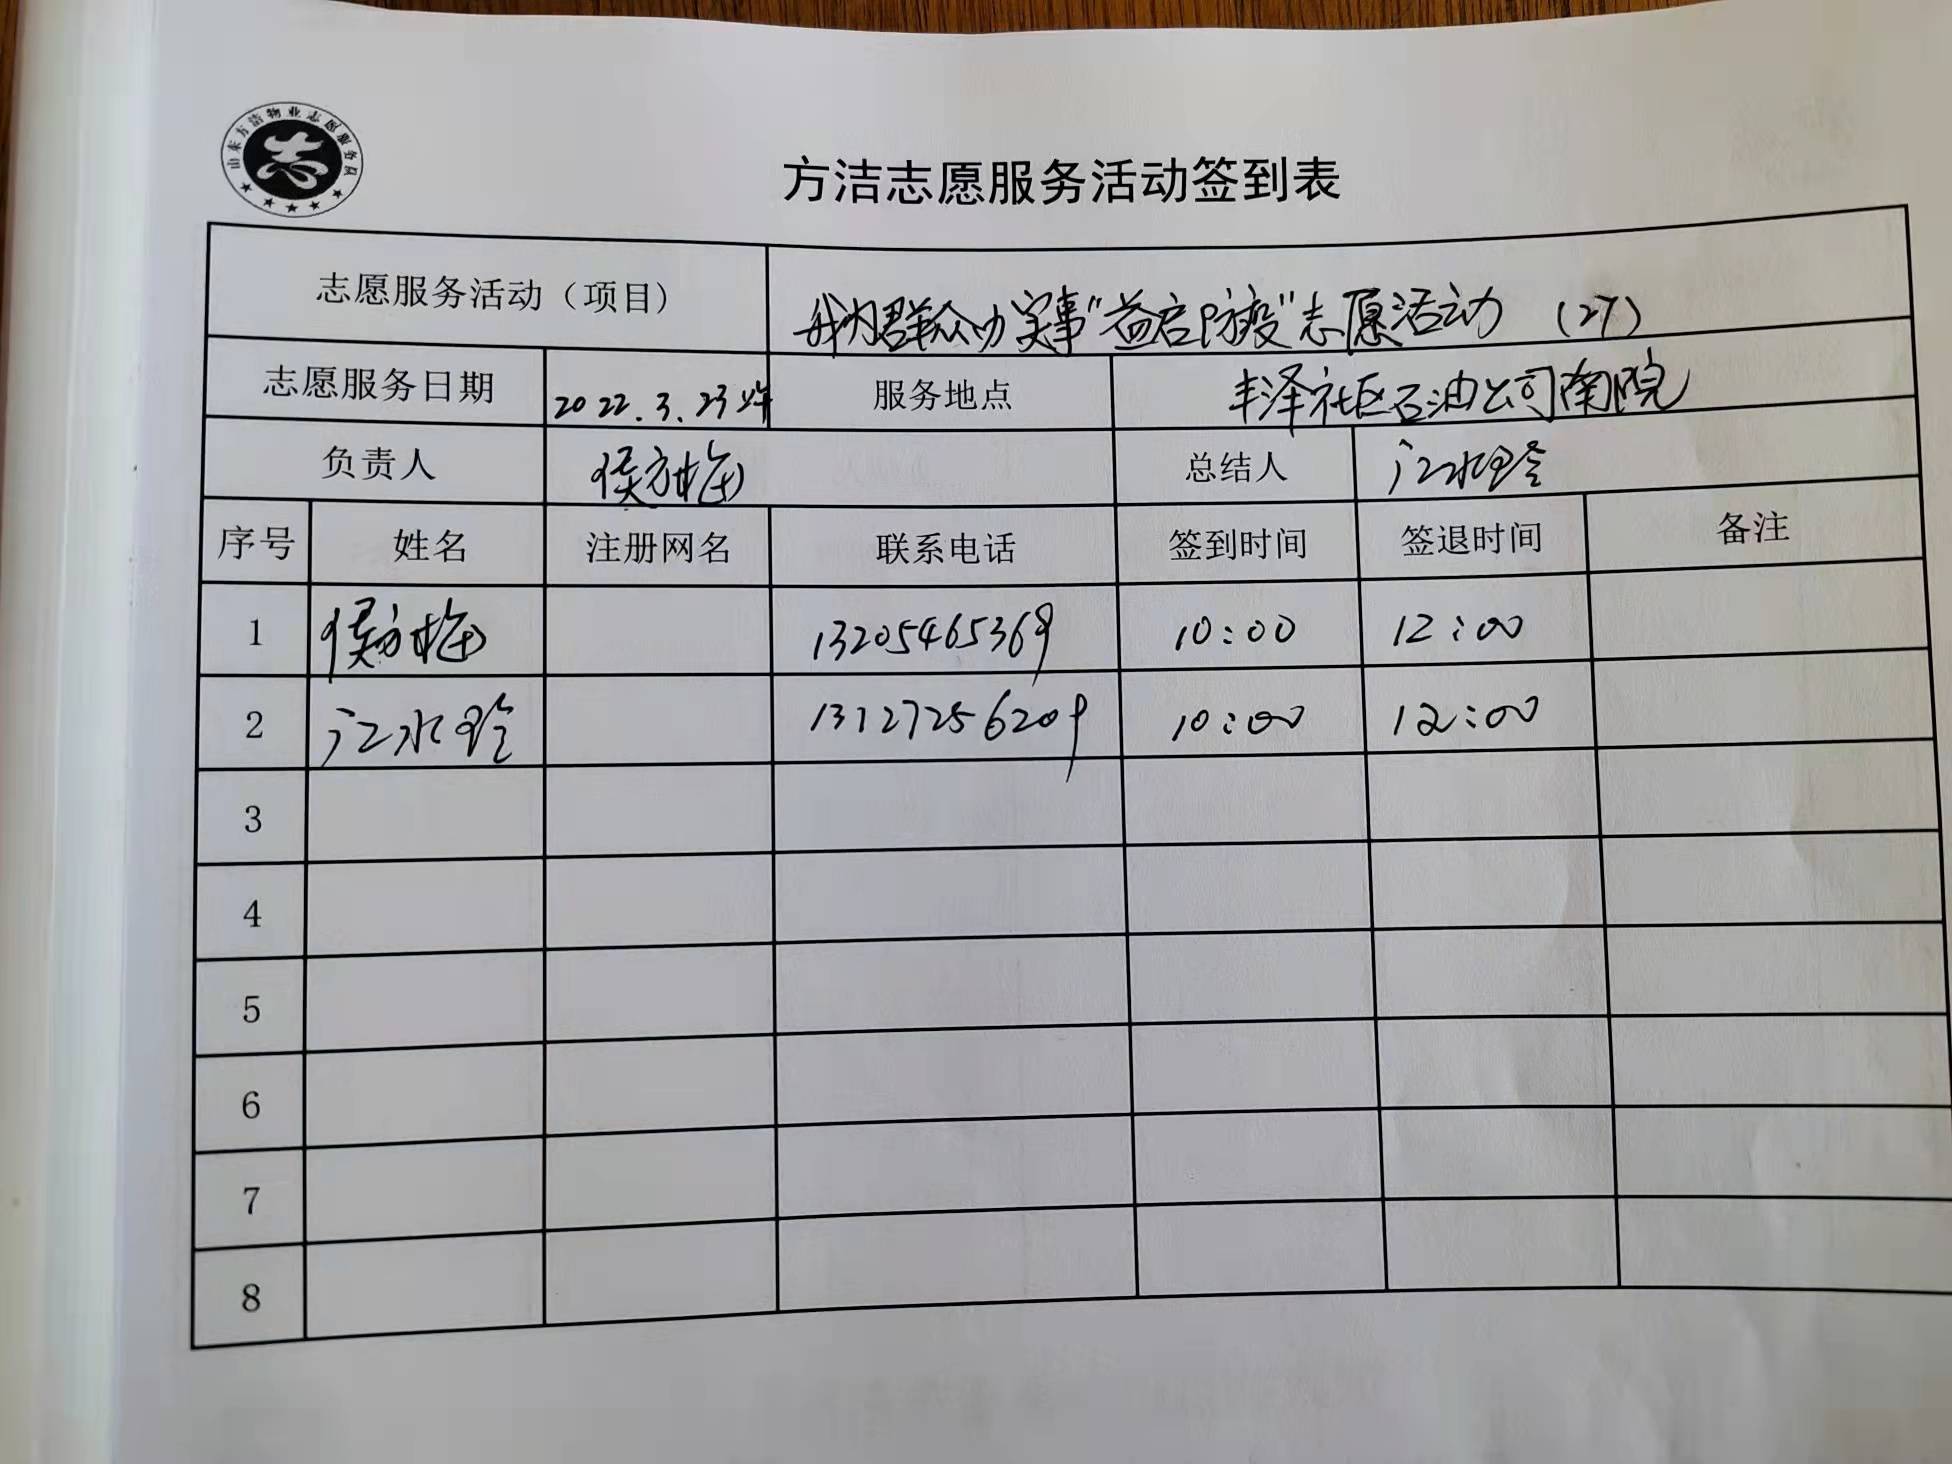 山东方洁物业志愿服务队
方洁志愿服务活动签到表
志愿服务活动（项目） 我为群众办实事"益启防疫"志愿活动 （27）
志愿服务日期 2022.3.23 服务地点 丰泽社区石油公司南院
负责人 侯方梅 总结人 江水玲
序号 姓名 注册网名 联系电话 签到时间 签退时间 备注
1 侯方梅 13205465369 10:00 12:00
2 江水玲 13127256209 10:00 12:00
3
4
5
6
7
8